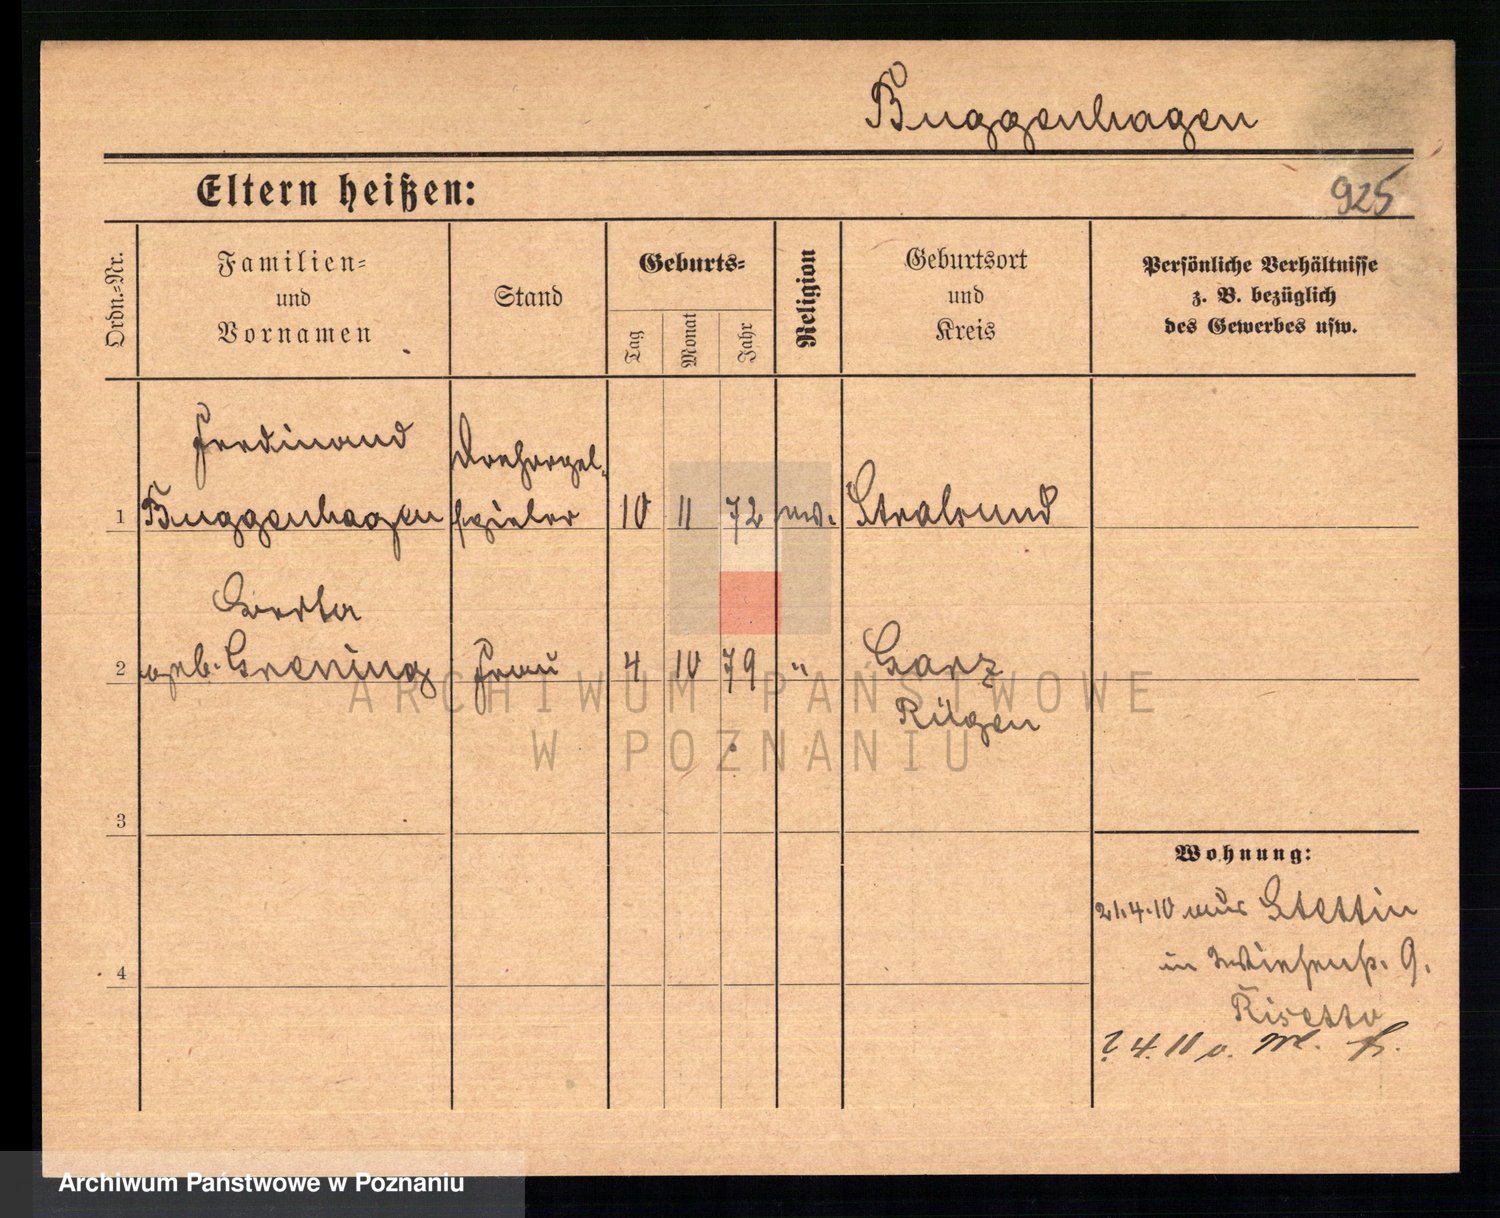 Buggenhagen
Eltern heißen:
925
Ordn.=Nr.
Familien=
und
Vornamen
Stand
Geburts=
Tag
Monat
Jahr
Religion
Geburtsort
und
Kreis
Persönliche Verhältnisse
z. B. bezüglich
des Gewerbes usw.
Ferdinand
Drehorgel-
1 Buggenhagen spieler 10 11 72 ev. Stralsund
Berta
2 geb. Grening Frau 4 10 79 " Garz
Rügen
ARCHIWUM PAŃSTWOWE
W POZNANIU
3
Wohnung:
21.4.10 aus Stettin
in Wiesenstr. 9.
4
4.11 v.
Archiwum Państwowe w Poznaniu